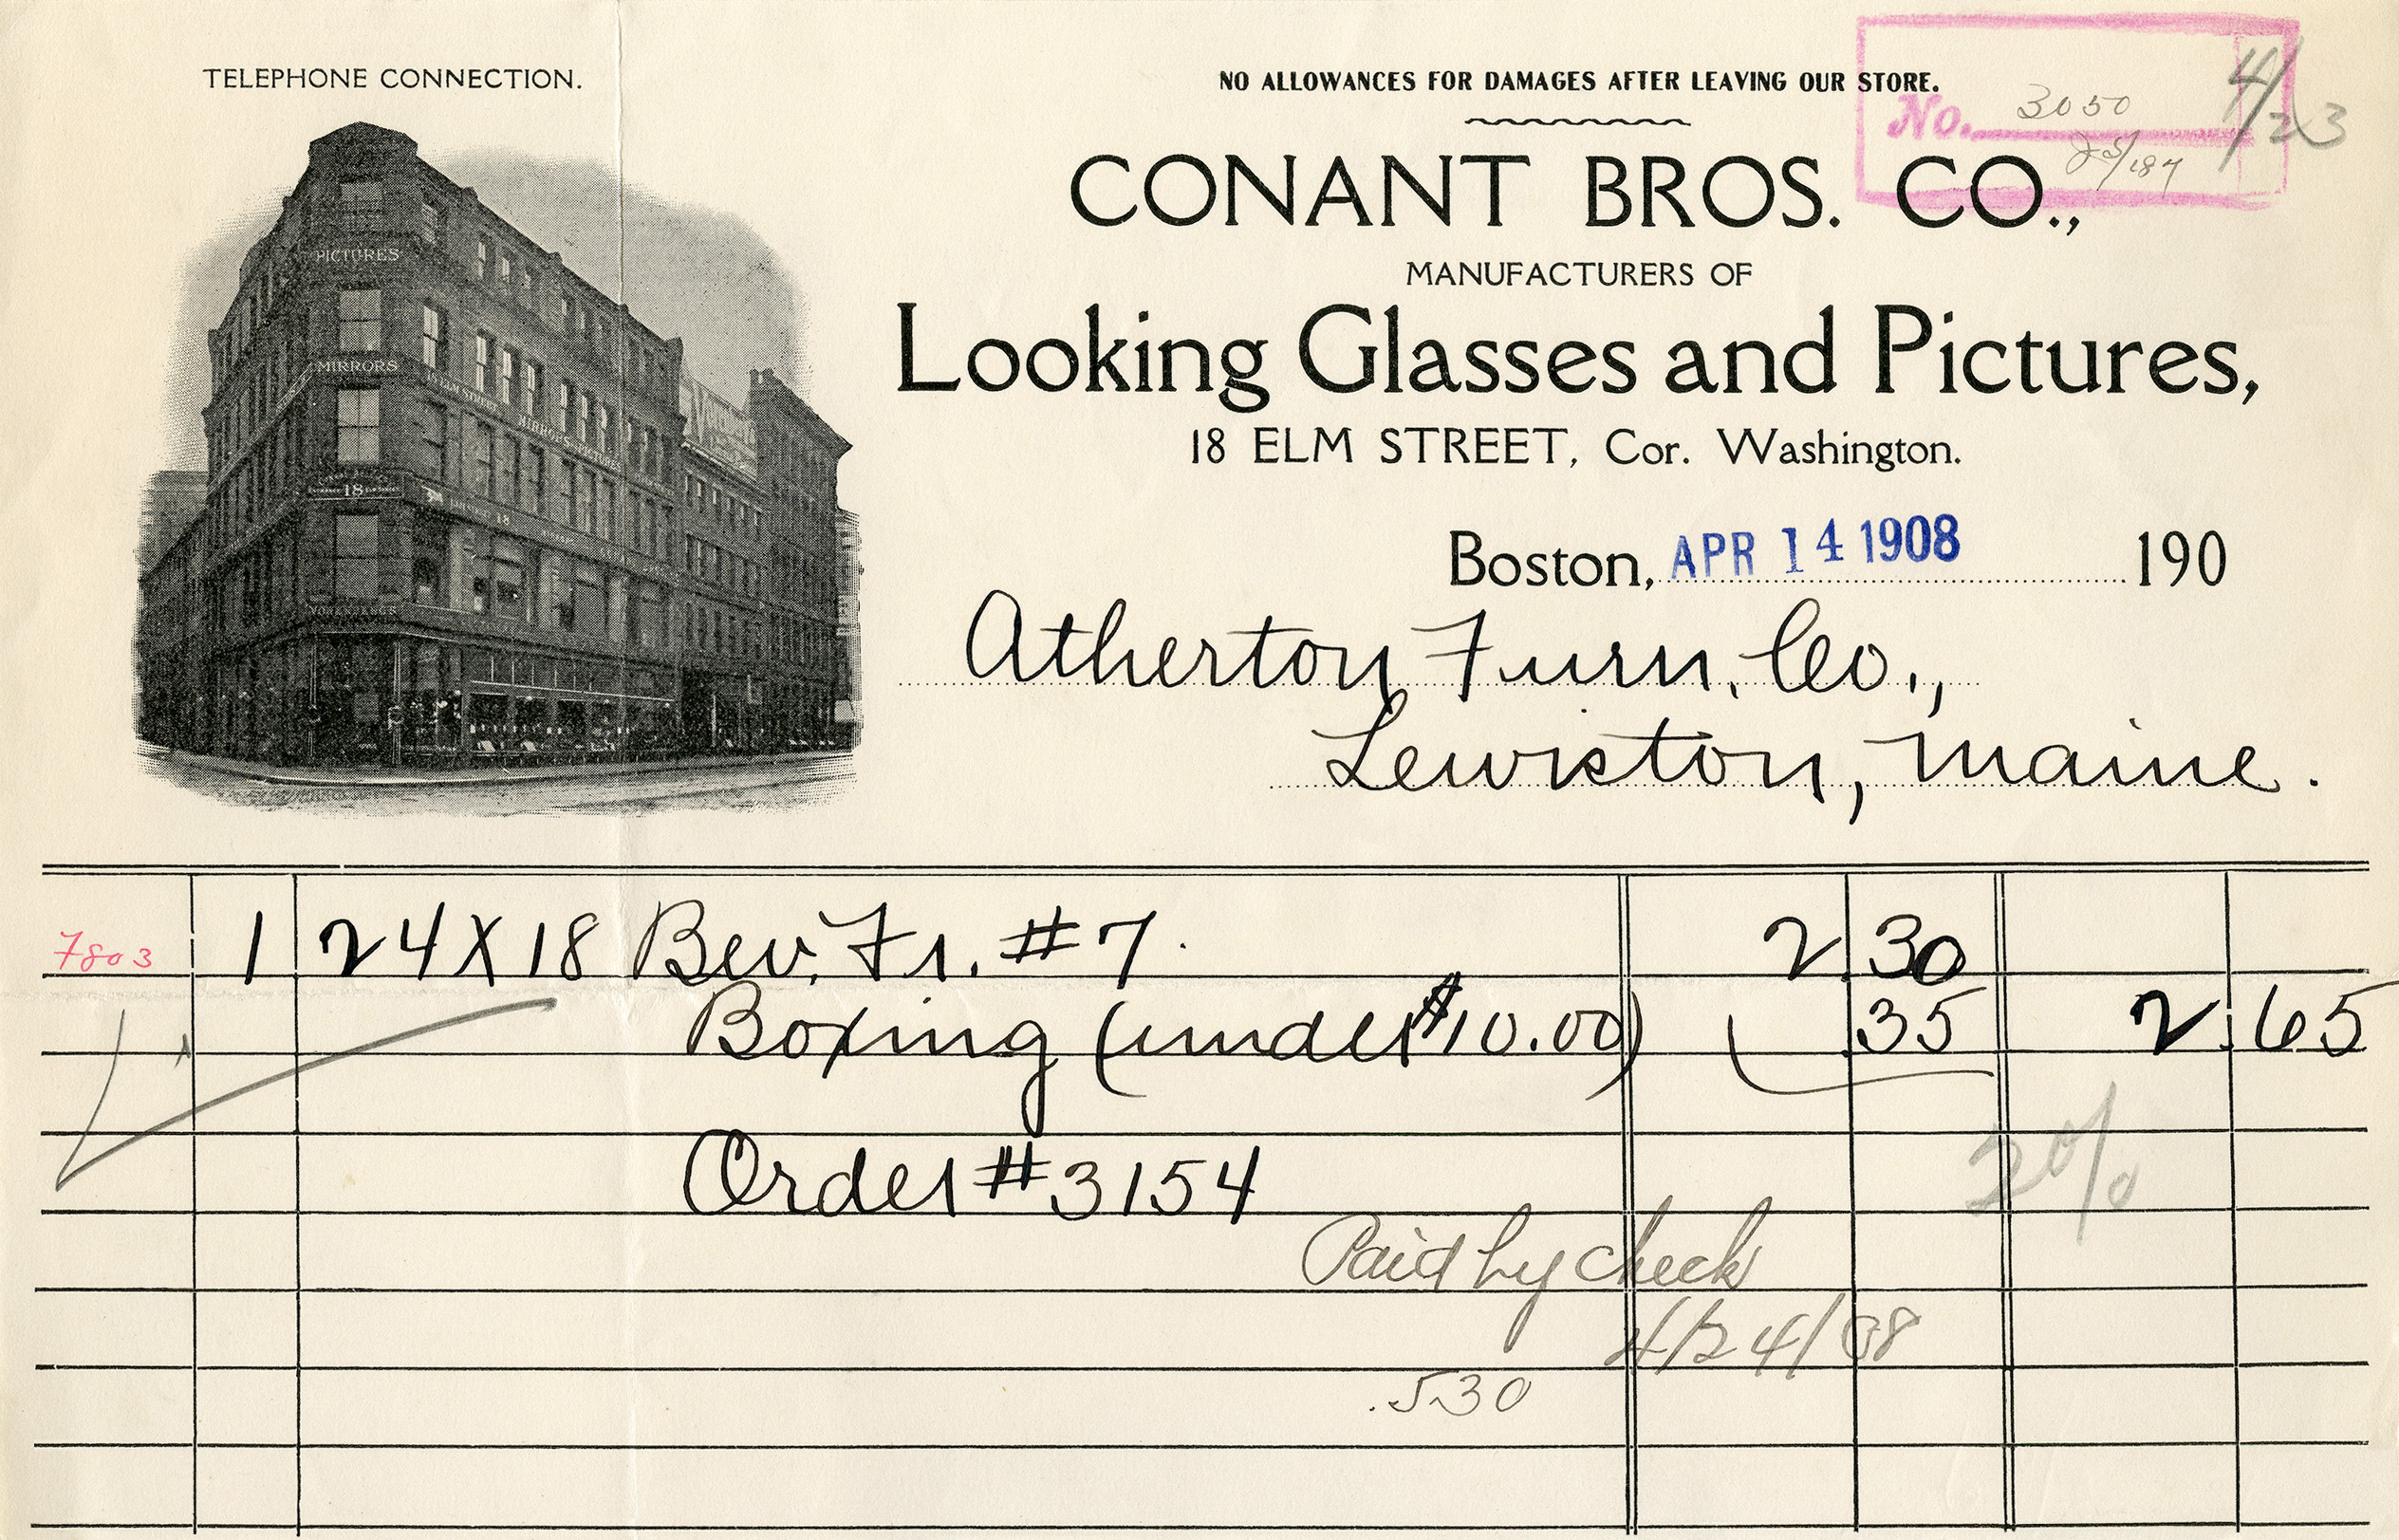 TELEPHONE CONNECTION.
NO ALLOWANCES FOR DAMAGES AFTER LEAVING OUR STORE.
No. 3050
4/23
CONANT BROS. CO.,
MANUFACTURERS OF
Looking Glasses and Pictures,
18 ELM STREET, Cor. Washington.
PICTURES
MIRRORS
18
Boston, APR 14 1908 190
Atherton Furn. Co.,
Lewiston, Maine.
7803 1 24 X 18 Bev. Fr. #7. 2.30
Boxing (under $10.00) .35 2.65
2%
Order #3154
Paid by check
4/24/08
.530